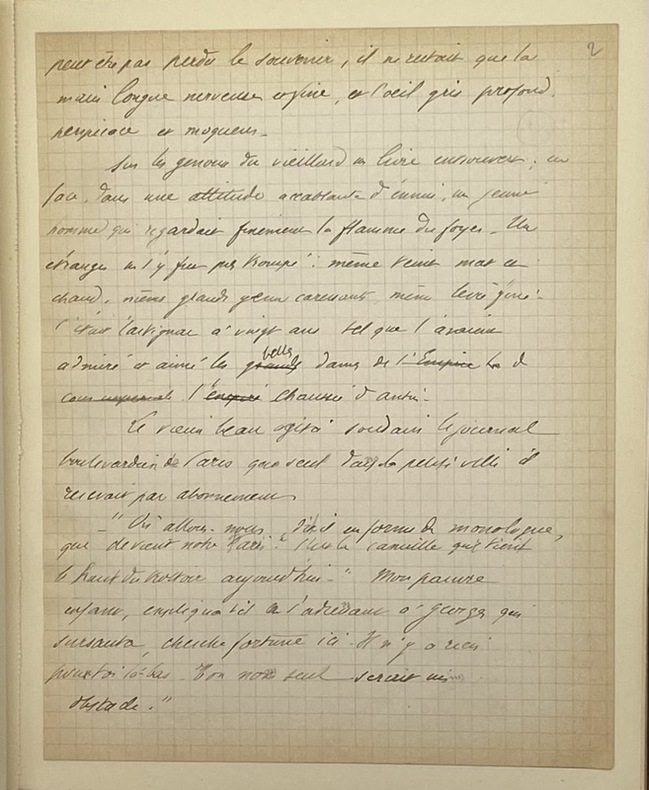 2
peut être pas perdu le souvenir, il ne restait que la
main longue nerveuse et fine, et l'oeil gris profond,
perspicace et moqueur.
Sur les genoux du vieillard un livre entrouvert; en
face, dans une attitude accablante d'ennui, un jeune
homme qui regardait finement la flamme du foyer. Un
étranger ne s'y fut pas trompé: même teint mat et
chaud, mêmes grands yeux caressants, même lèvre
C'était à vingt ans tel que l'avaient
admiré et aimé les grands belles dames de l'Empire la d
cour impériale l'empire chaussée d'antin.
Le vieux beau agita soudain le journal
boulevardier de Paris que seul dans la petite ville il
recevait par abonnement.
- "Où allons-nous, dit-il en forme de monologue,
que devient notre Paris? C'est la canaille qui tient
le haut du trottoir aujourd'hui." Mon pauvre
enfant, expliqua-t-il en s'adressant à Georges qui
sursauta, cherche fortune ici. Il n'y a rien
pour toi là-bas. Ton nom seul serait un
obstacle."